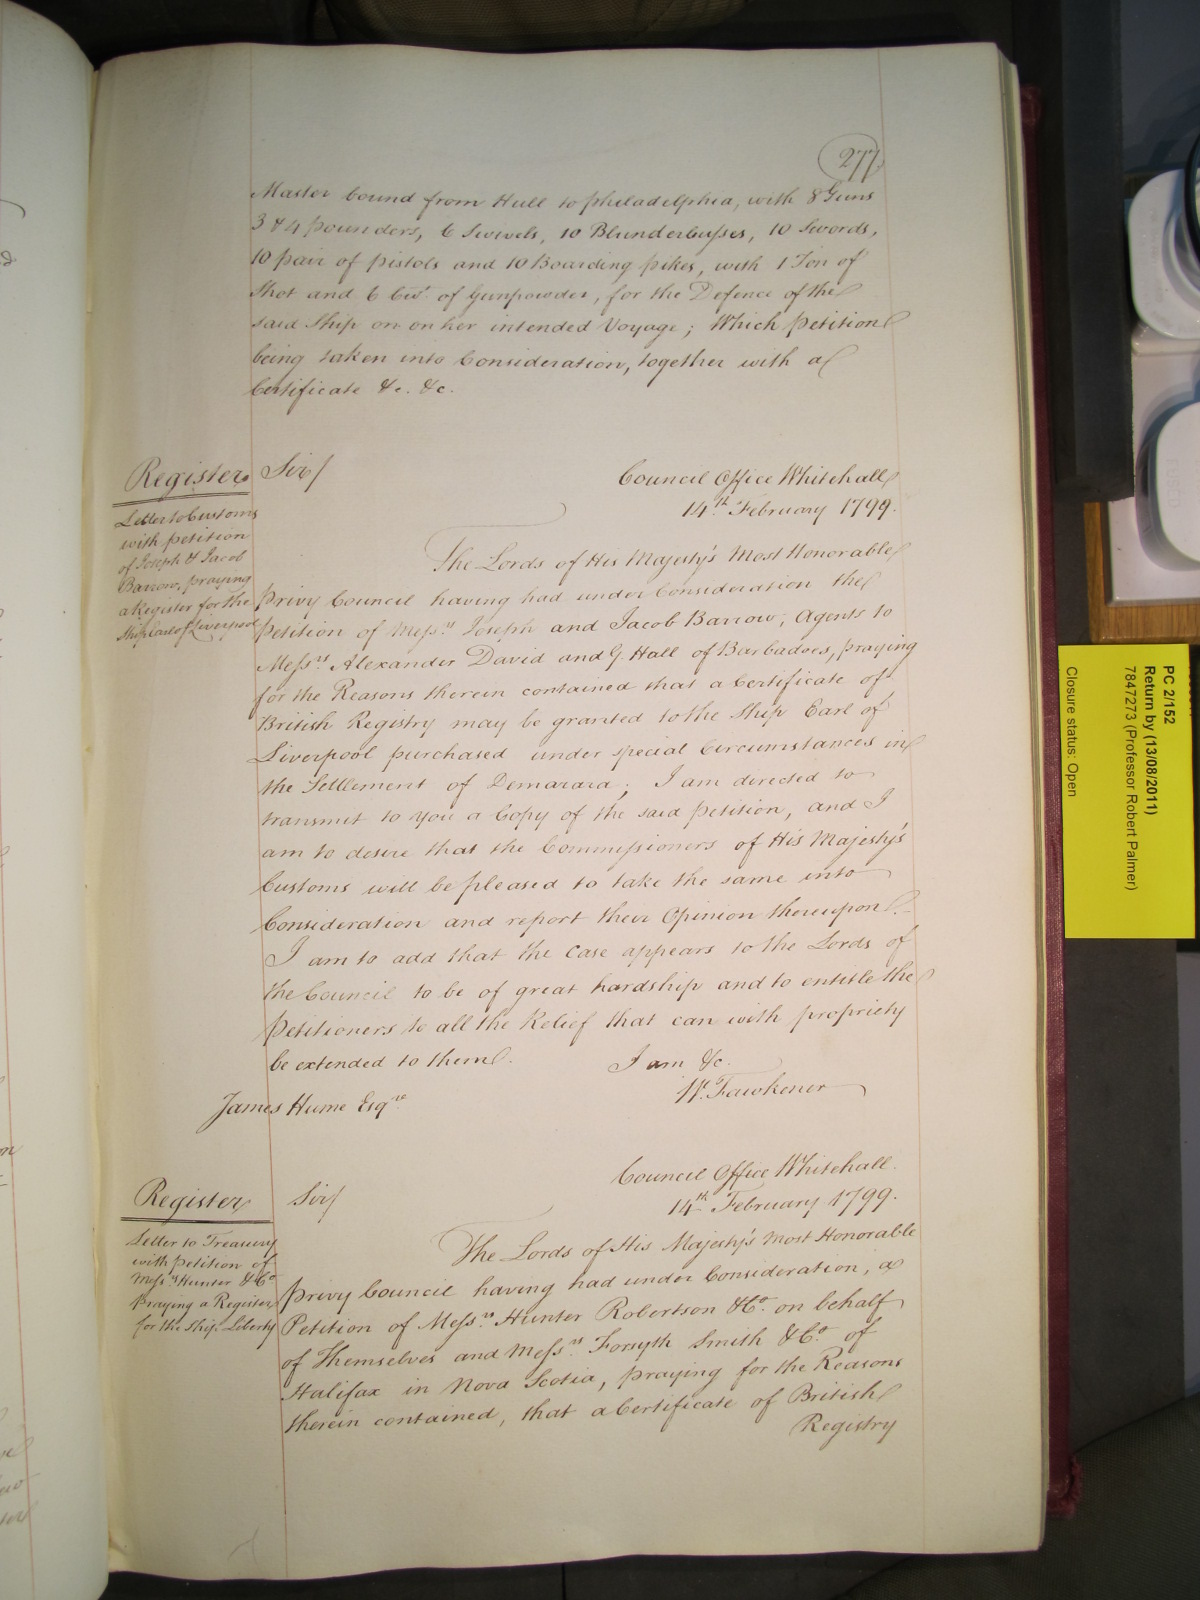 277
Master bound from Hull to Philadelphia, with 8 Guns
3 & 4 pounders, 6 Swivels, 10 Blunderbusses, 10 Swords,
10 pair of Pistols and 10 Boarding pikes, with 1 Ton of
Shot and 6 Cwt. of Gunpowder, for the Defence of the
said Ship on on her intended Voyage; Which Petition
being taken into Consideration, together with a
Certificate &c. &c.
Register
Letter to Customs
with petition
of Joseph & Jacob
Barrow, praying
a Register for the
Ship Earl of Liverpool
Sir/
Council Office Whitehall
14th February 1799.
The Lords of His Majesty's Most Honorable
Privy Council having had under Consideration the
Petition of Messrs Joseph and Jacob Barrow, Agents to
Messrs Alexander David and G. Hall of Barbadoes, praying
for the Reasons therein contained that a Certificate of
British Registry may be granted to the Ship Earl of
Liverpool purchased under special Circumstances in
the Settlement of Demarara; I am directed to
transmit to you a Copy of the said Petition, and I
am to desire that the Commissioners of His Majesty's
Customs will be pleased to take the same into
Consideration and report their Opinion thereupon.
I am to add that the Case appears to the Lords of
the Council to be of great hardship and to entitle the
Petitioners to all the Relief that can with propriety
be extended to them.
I am &c.
W. Fawkener
James Hume Esqre
Register
Letter to Treasury
with Petition of
Messrs Hunter & Co
Praying a Register
for the Ship Liberty
Sir/
Council Office Whitehall.
14th February 1799.
The Lords of His Majesty's Most Honorable
Privy Council having had under Consideration, a
Petition of Messrs Hunter Robertson & Co. on behalf
of Themselves and Messrs Forsyth Smith & Co. of
Halifax in Nova Scotia, praying for the Reasons
therein contained, that a Certificate of British
Registry
PC 2/152
Return by (13/08/2011)
7847273 (Professor Robert Palmer)
Closure status: Open